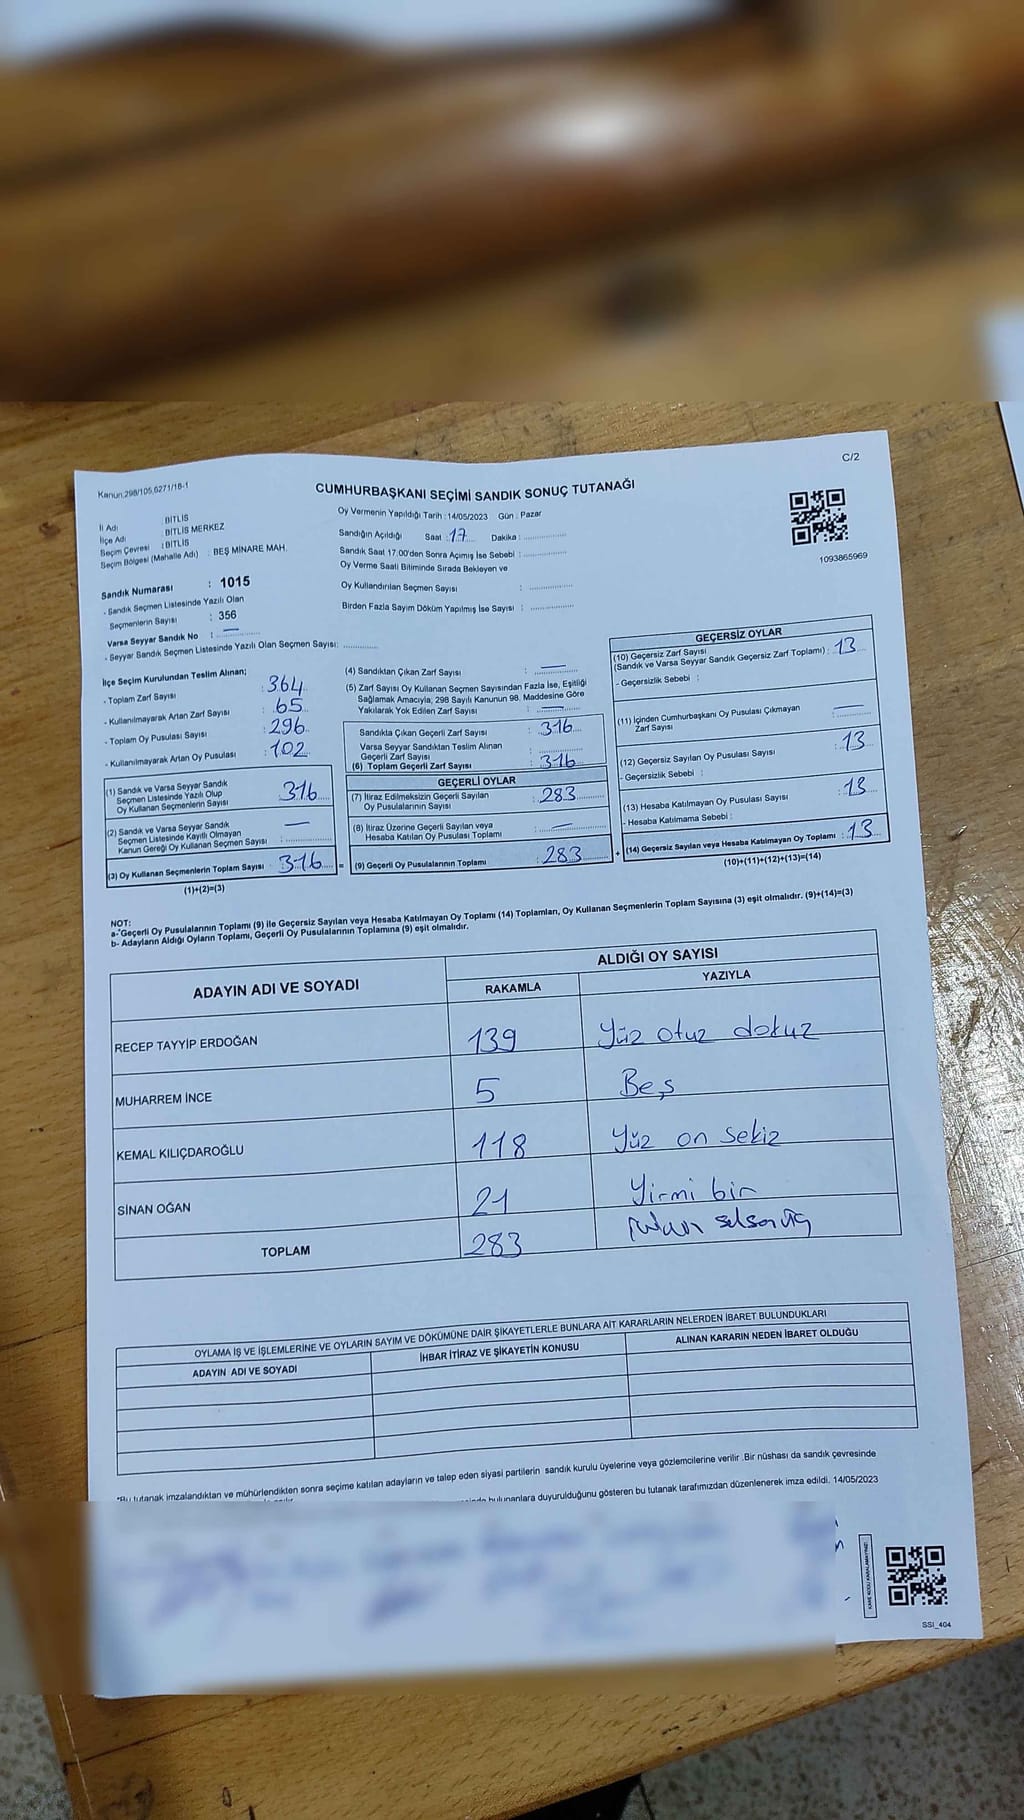 Kanun,298/105,6271/18-1
C/2
CUMHURBAŞKANI SEÇİMİ SANDIK SONUÇ TUTANAĞI
İl Adı : BİTLİS
İlçe Adı : BİTLİS MERKEZ
Seçim Çevresi : BİTLİS
Seçim Bölgesi (Mahalle Adı) : BEŞ MİNARE MAH.
Sandık Numarası : 1015
- Sandık Seçmen Listesinde Yazılı Olan
Seçmenlerin Sayısı : 356
Varsa Seyyar Sandık No : —
- Seyyar Sandık Seçmen Listesinde Yazılı Olan Seçmen Sayısı:
Oy Vermenin Yapıldığı Tarih : 14/05/2023 Gün : Pazar
Sandığın Açıldığı Saat : 17 Dakika :
Sandık Saat 17.00'den Sonra Açımış İse Sebebi :
Oy Verme Saati Bitiminde Sırada Bekleyen ve
Oy Kullandırılan Seçmen Sayısı :
Birden Fazla Sayım Döküm Yapılmış İse Sayısı :
1093865969
İlçe Seçim Kurulundan Teslim Alınan;
- Toplam Zarf Sayısı : 364
- Kullanılmayarak Artan Zarf Sayısı : 65
- Toplam Oy Pusulası Sayısı : 296
- Kullanılmayarak Artan Oy Pusulası : 102
(1) Sandık ve Varsa Seyyar Sandık
Seçmen Listesinde Yazılı Olup
Oy Kullanan Seçmenlerin Sayısı 316
(2) Sandık ve Varsa Seyyar Sandık
Seçmen Listesinde Kayıtlı Olmayan
Kanun Gereği Oy Kullanan Seçmen Sayısı : —
(3) Oy Kullanan Seçmenlerin Toplam Sayısı : 316 =
(1)+(2)=(3)
(4) Sandıktan Çıkan Zarf Sayısı : —
(5) Zarf Sayısı Oy Kullanan Seçmen Sayısından Fazla İse, Eşitliği
Sağlamak Amacıyla, 298 Sayılı Kanunun 98. Maddesine Göre
Yakılarak Yok Edilen Zarf Sayısı : —
Sandıkta Çıkan Geçerli Zarf Sayısı : 316
Varsa Seyyar Sandıktan Teslim Alınan
Geçerli Zarf Sayısı :
(6) Toplam Geçerli Zarf Sayısı : 316
GEÇERLİ OYLAR
(7) İtiraz Edilmeksizin Geçerli Sayılan
Oy Pusulalarının Sayısı : 283
(8) İtiraz Üzerine Geçerli Sayılan veya
Hesaba Katılan Oy Pusulası Toplamı : —
(9) Geçerli Oy Pusulalarının Toplamı : 283 +
GEÇERSİZ OYLAR
(10) Geçersiz Zarf Sayısı
(Sandık ve Varsa Seyyar Sandık Geçersiz Zarf Toplamı) : 13
- Geçersizlik Sebebi :
(11) İçinden Cumhurbaşkanı Oy Pusulası Çıkmayan
Zarf Sayısı : —
(12) Geçersiz Sayılan Oy Pusulası Sayısı : 13
- Geçersizlik Sebebi :
(13) Hesaba Katılmayan Oy Pusulası Sayısı : 13
- Hesaba Katılmama Sebebi :
(14) Geçersiz Sayılan veya Hesaba Katılmayan Oy Toplamı : 13
(10)+(11)+(12)+(13)=(14)
NOT:
a- Geçerli Oy Pusulalarının Toplamı (9) ile Geçersiz Sayılan veya Hesaba Katılmayan Oy Toplamı (14) Toplamları, Oy Kullanan Seçmenlerin Toplam Sayısına (3) eşit olmalıdır. (9)+(14)=(3)
b- Adayların Aldığı Oyların Toplamı, Geçerli Oy Pusulalarının Toplamına (9) eşit olmalıdır.
ADAYIN ADI VE SOYADI
ALDIĞI OY SAYISI
RAKAMLA YAZIYLA
RECEP TAYYİP ERDOĞAN 139 Yüz otuz dokuz
MUHARREM İNCE 5 Beş
KEMAL KILIÇDAROĞLU 118 Yüz on sekiz
SİNAN OĞAN 21 Yirmi bir
TOPLAM 283
OYLAMA İŞ VE İŞLEMLERİNE VE OYLARIN SAYIM VE DÖKÜMÜNE DAİR ŞİKAYETLERLE BUNLARA AİT KARARLARIN NELERDEN İBARET BULUNDUKLARI
ADAYIN ADI VE SOYADI
İHBAR İTİRAZ VE ŞİKAYETİN KONUSU
ALINAN KARARIN NEDEN İBARET OLDUĞU
*Bu tutanak imzalandıktan ve mühürlendikten sonra seçime katılan adayların ve talep eden siyasi partilerin sandık kurulu üyelerine veya gözlemcilerine verilir. Bir nüshası da sandık çevresinde
bulunanlara duyurulduğunu gösteren bu tutanak tarafımızdan düzenlenerek imza edildi. 14/05/2023
SSI_404